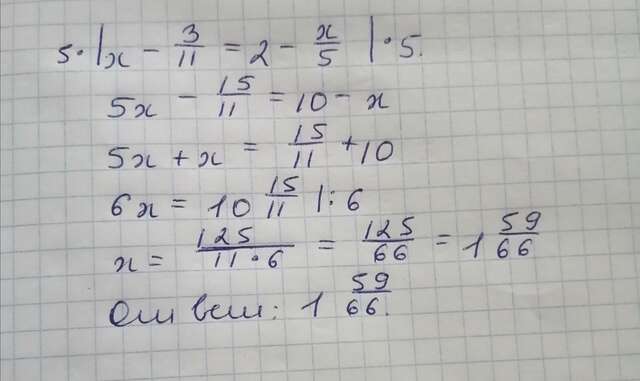 5·|x - 3/11 = 2 - x/5 |·5.
5x - 15/11 = 10 - x
5x + x = 15/11 + 10
6x = 10 15/11 |: 6
x = 125/11·6 = 125/66 = 1 59/66
Ответ: 1 59/66.